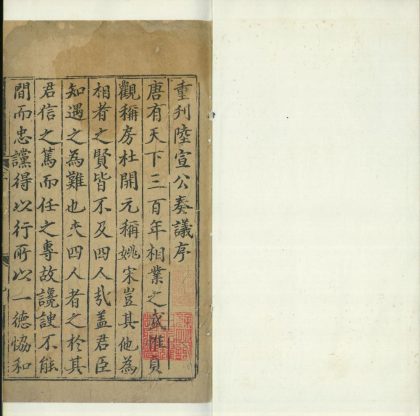 重刋陸宣公奏議序
唐有天下三百年相業之盛惟貞
觀稱房杜開元稱姚宋豈其他為
相者之賢皆不及四人㢤盖君臣
知遇之為難也夫四人者之於其
君信之篤而任之專故讒諛不能
間而忠讜得以行所以一德恊和